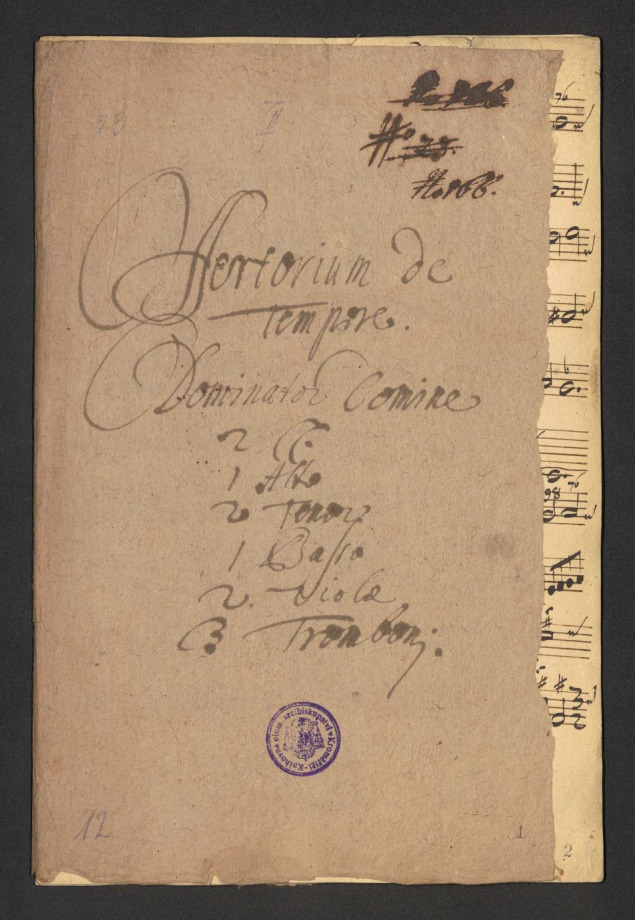 II
No 73.
No 166.
Offertorium de
Tempore.
Dominator Domine
2 C.
1 Alto
2 Tenor
1 Basso
2. Violæ
3 Tromboni.
Knihovna olom. arcibiskupství v Kroměříži
12
1
2